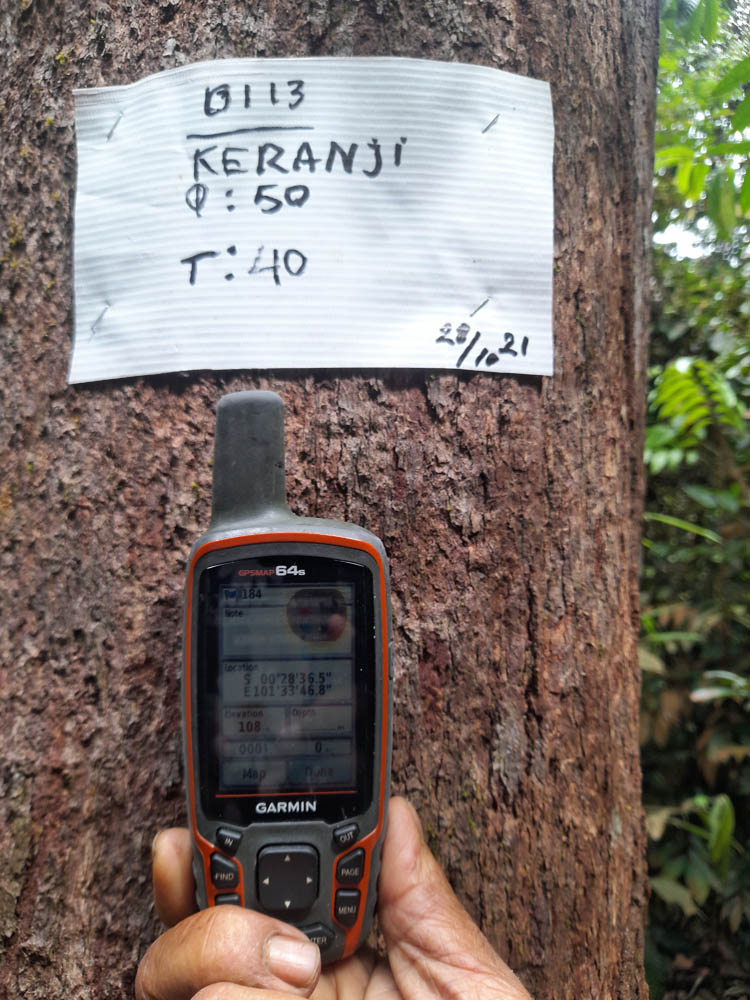 B113
KERANJi
Φ: 50
T: 40
28/10 21
GPSMAP 64s
184
Note
Location
S 00°28'36.5"
E101°33'46.8"
Elevation
Depth
108
0001
0
Map
Done
GARMIN
IN
OUT
FIND
PAGE
MENU